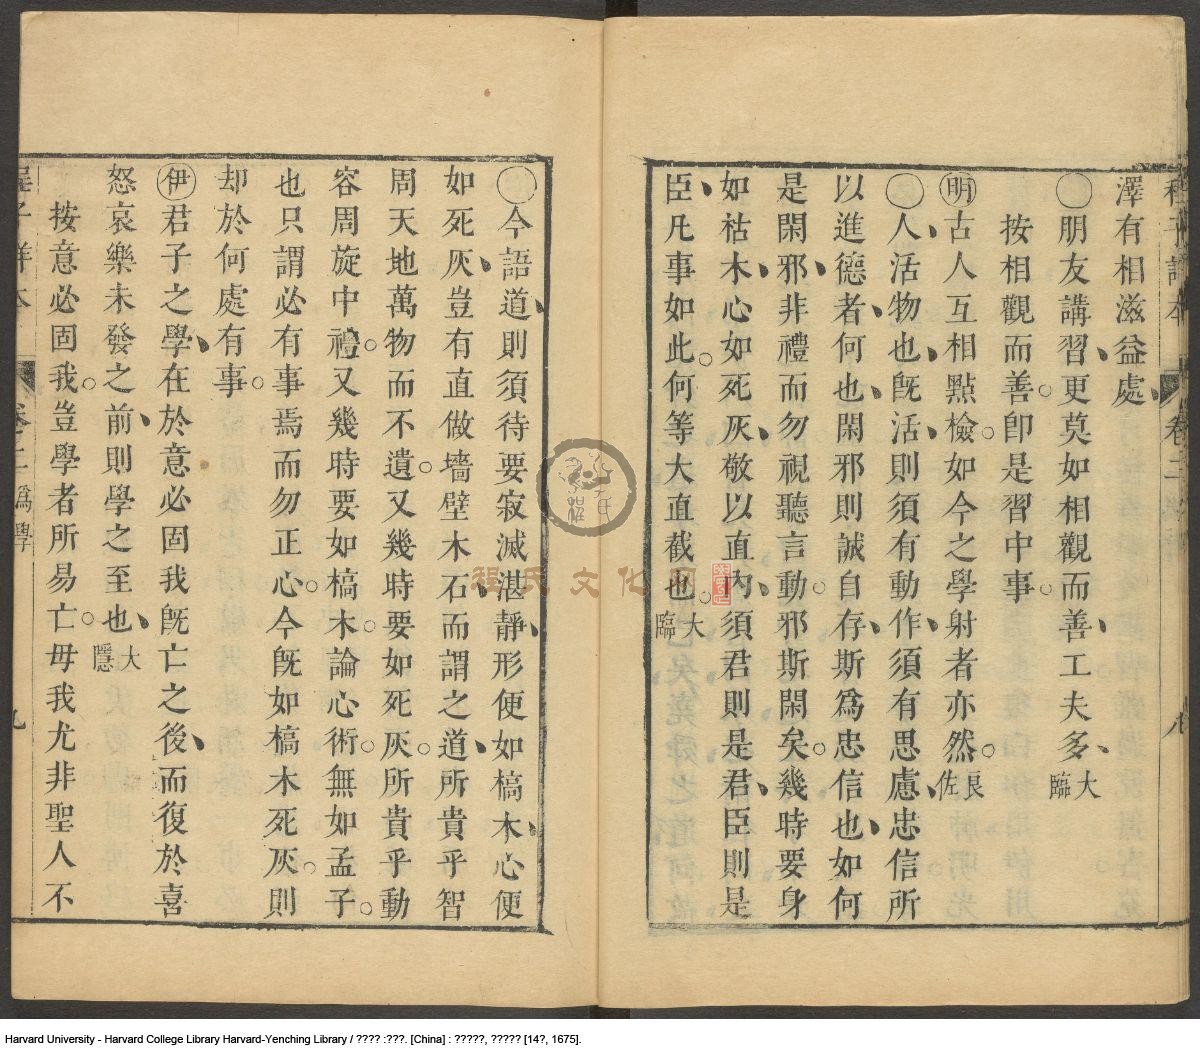 澤有相滋益處
〇朋友講習更莫如相觀而善工夫多大臨
按相觀而善。卽是習中事。
明古人互相點檢。如今之學射者亦然。良佐
〇人活物也旣活則須有動作須有思慮忠信所
以進德者何也閑邪則誠自存斯爲忠信也如何
是閑邪非禮而勿視聽言動。邪斯閑矣。幾時要身
如枯木心如死灰敬以直內須君則是君臣則是
臣凡事如此。何等大直截也。大臨
卷二
〇今語道則須待要寂滅湛靜形便如槁木心便
如死灰豈有直做墻壁木石而謂之道所貴乎智
周天地萬物而不遺。又幾時要如死灰。所貴乎動
容周旋中禮。又幾時要如槁木。論心術。無如孟子。
也只謂必有事焉而勿正心。今旣如槁木死灰。則
却於何處有事。
伊君子之學在於意必固我旣亡之後而復於喜
怒哀樂未發之前則學之至也大隱
按意必固我。豈學者所易亡。毋我尤非聖人不
卷二 爲學
九
程氏文化
Harvard University - Harvard College Library Harvard-Yenching Library / ???? :???. [China] : ?????, ????? [14?, 1675].